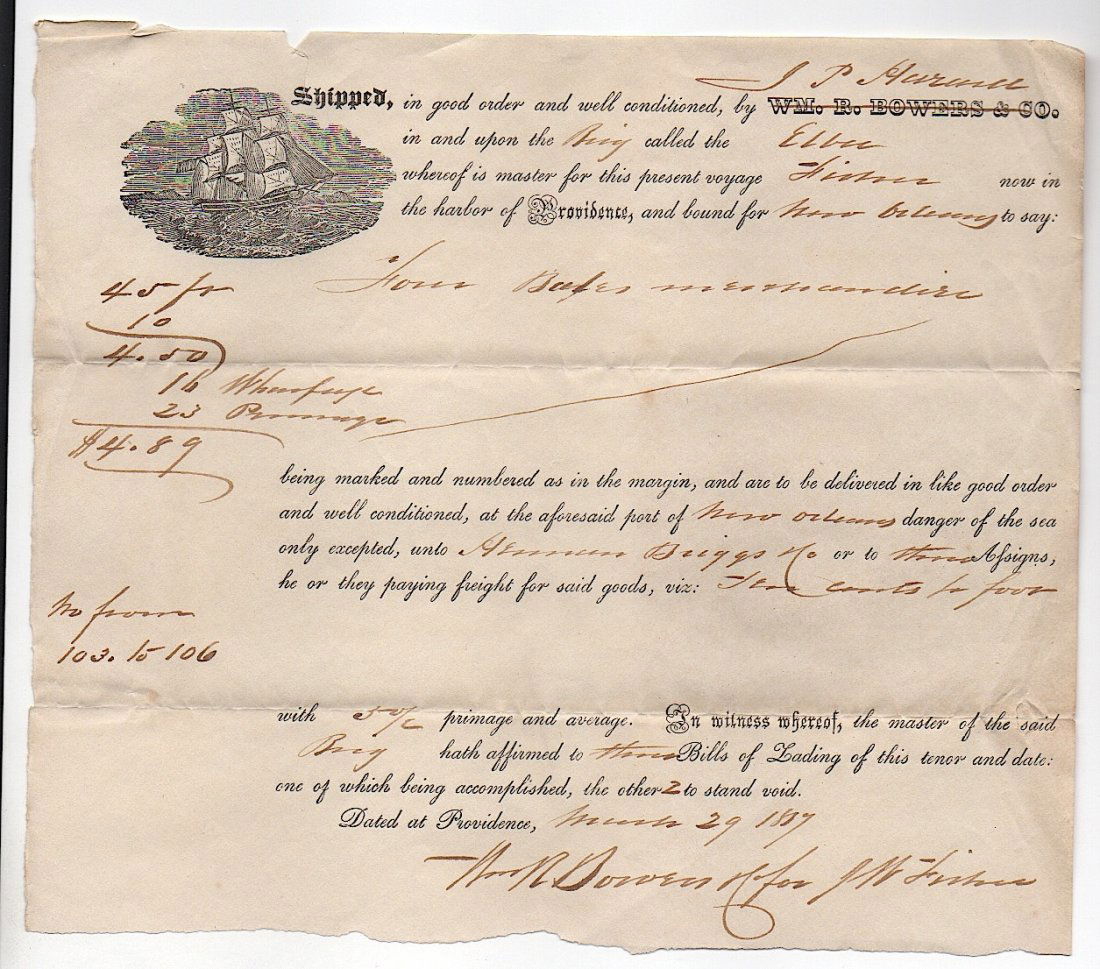 J P
Shipped, in good order and well conditioned, by WM. R. BOWERS & CO.
in and upon the Brig called the
whereof is master for this present voyage Fisher now in
the harbor of Providence, and bound for New Orleans to say:
45 ft Four Bales merchandise
10
4.50
16 Wharfage
23 Primage
$4.89
being marked and numbered as in the margin, and are to be delivered in like good order
and well conditioned, at the aforesaid port of New Orleans danger of the sea
only excepted, unto Herman Briggs & Co or to their Assigns,
he or they paying freight for said goods, viz: Ten cents p foot
No from
103. to 106
with 5 o/o primage and average. In witness whereof, the master of the said
Brig hath affirmed to three Bills of Lading of this tenor and date:
one of which being accomplished, the other 2 to stand void.
Dated at Providence, March 29 1837
Wm R Bowers & Co for J W Fisher